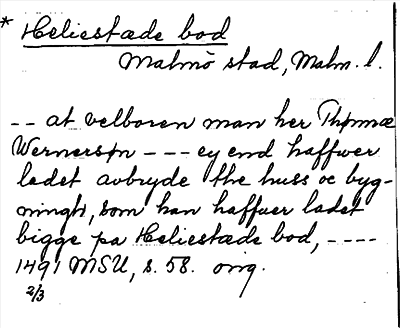 * Heliestæde bod
Malmö stad, Malm. l.
-- at velboren man her Thømæ
Wernersøn --- ey end haffwer
ladet avbryde the huss oc byg-
ningh, som han haffuer ladet
bigge pa Heliestæde bod, ----
1491 MSU, s. 58. orig.
2/3